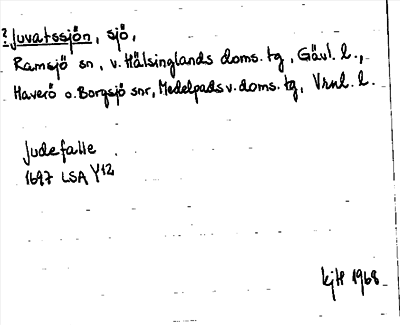 ? Juvatssjön, sjö,
Ramsjö sn, v. Hälsinglands doms. tg, Gävl. l.,
Haverö o. Borgsjö snr, Medelpads v. doms. tg, Vrnl. l.
Judefalle
1697 LSA Y12
kjH 1968